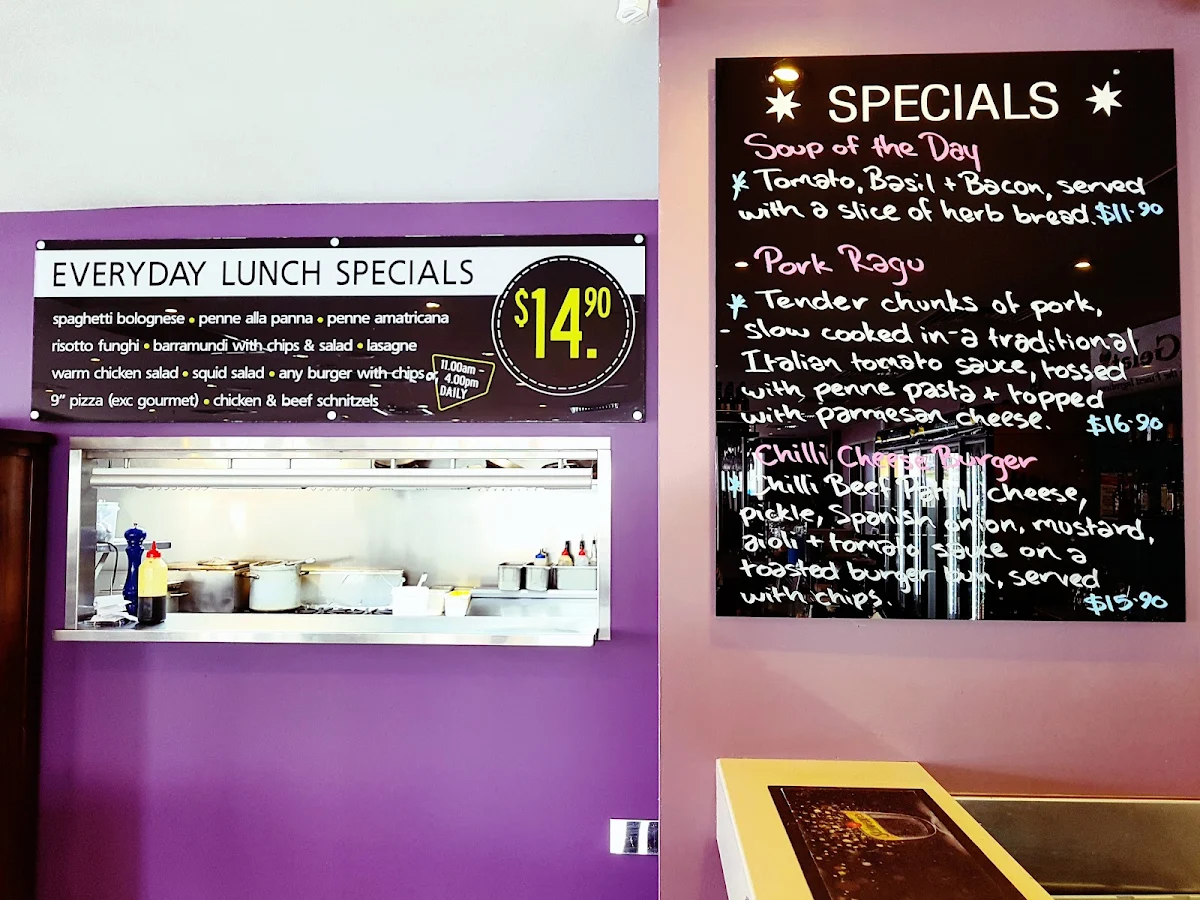 EVERYDAY LUNCH SPECIALS
$14.90
spaghetti bolognese • penne alla panna • penne amatricana
risotto funghi • barramundi with chips & salad • lasagne
warm chicken salad • squid salad • any burger with chips
9" pizza (exc gourmet) • chicken & beef schnitzels
11.00am -
4.00pm
DAILY
SPECIALS
Soup of the Day
* Tomato, Basil + Bacon, served
with a slice of herb bread. $11.90
Pork Ragu
* Tender chunks of pork,
slow cooked in a traditional
Italian tomato sauce, tossed
with penne pasta + topped
with parmesan cheese. $16.90
Chilli Cheese Burger
* Chilli Beef Patty, cheese,
pickle, Spanish onion, mustard,
aioli + tomato sauce on a
toasted burger bun, served
with chips. $15.90